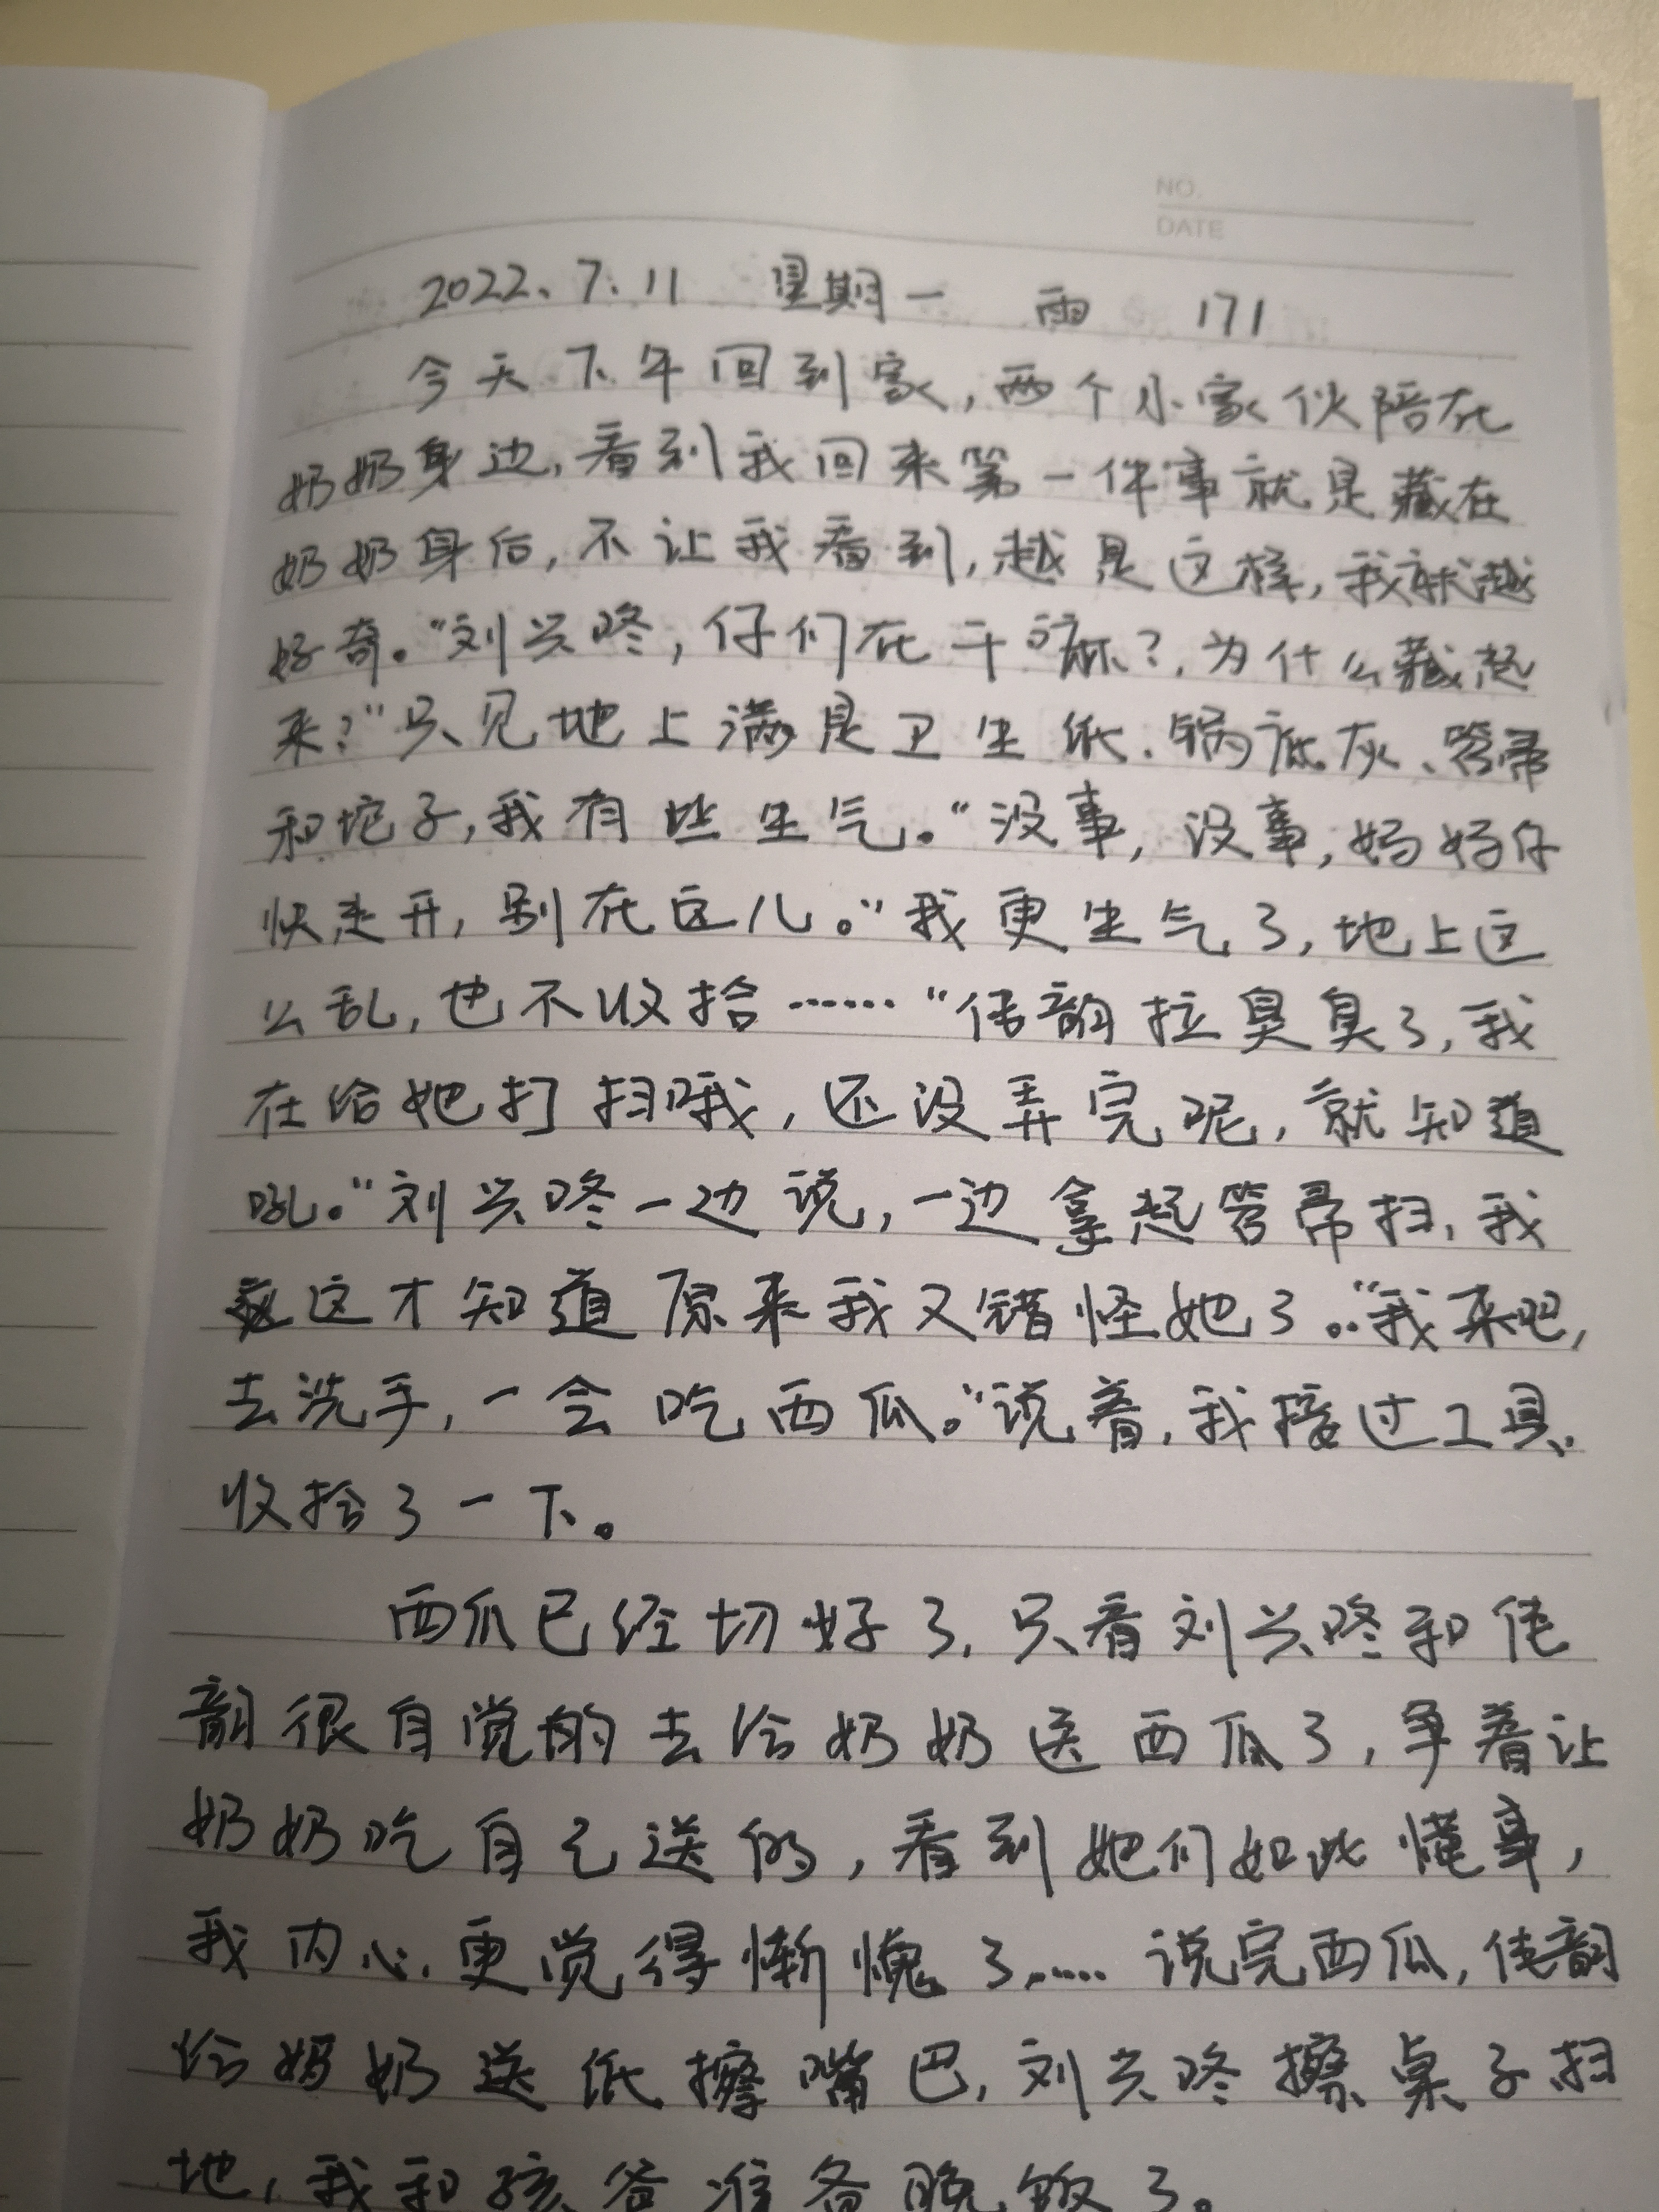 NO.
DATE
2022、7、11 星期一 雨 171
今天下午回到家,两个小家伙陪在
奶奶身边,看到我回来第一件事就是藏在
奶奶身后,不让我看到,越是这样,我就越
好奇。“刘兴咚,仔们在干嘛?,为什么藏起
来?”只见地上满是卫生纸、锅底灰、笤帚
和坨子,我有些生气。“没事,没事,妈妈仔
快走开,别在这儿。”我更生气了,地上这
么乱,也不收拾……“佳韵拉臭臭了,我
在给她打扫哦,还没弄完呢,就知道
吼。”刘兴咚一边说,一边拿起笤帚扫,我
这才知道原来我又错怪她了。“我来吧,
去洗手,一会吃西瓜。”说着,我接过工具、
收拾了一下。
西瓜已经切好了,只看刘兴咚和佳
韵很自觉的去给奶奶送西瓜了,争着让
奶奶吃自己送的,看到她们如此懂事,
我内心更觉得惭愧了…… 说完西瓜,佳韵
给妈奶送纸擦嘴巴,刘兴咚擦桌子扫
地,我和孩爸准备晚饭了。